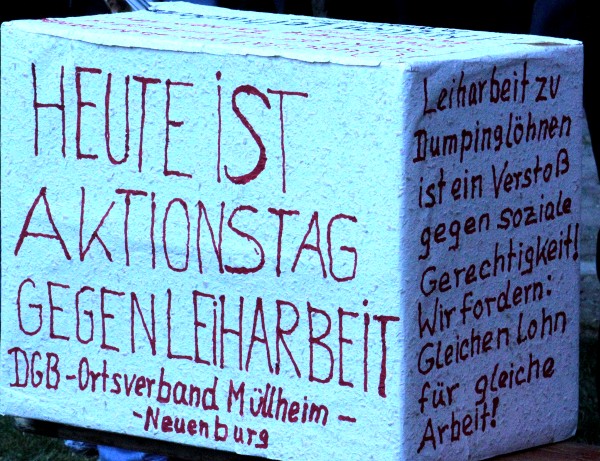 HEUTE iST
AKTIONSTAG
GEGEN LEiHARBEIT
DGB-Ortsverband Müllheim-
-Neuenburg
Leiharbeit zu
Dumpinglöhnen
ist ein Verstoß
gegen soziale
Gerechtigkeit!
Wir fordern:
Gleichen Lohn
für gleiche
Arbeit!